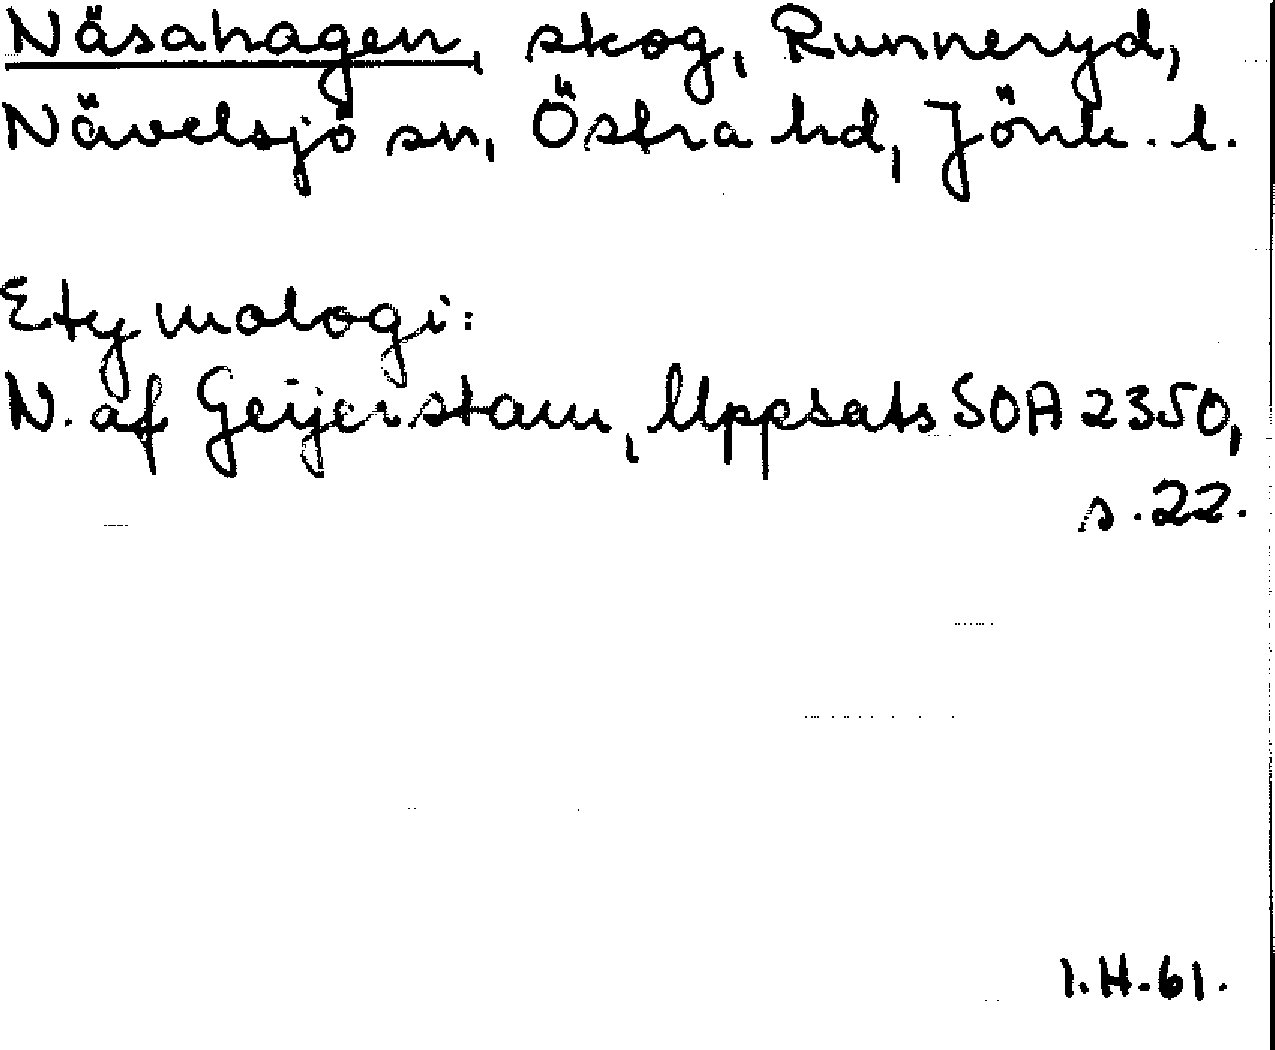 Näsahagen, skog, Runneryd,
Nävelsjö sn, Östra hd, Jönk. l.
Etymologi:
N. af Geijerstam, Uppsats SOA 2350,
s. 22.
I.H.61.